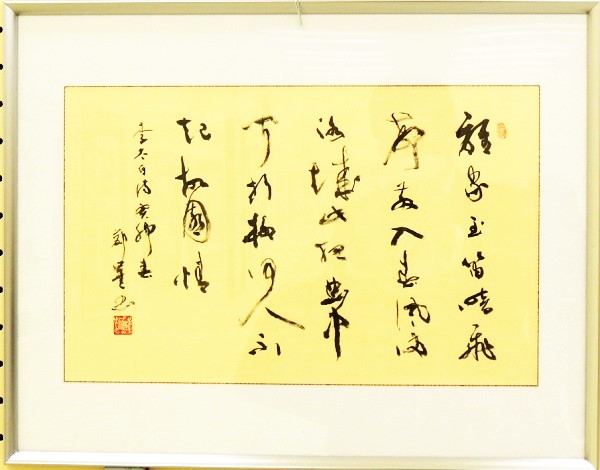 誰家玉笛暗飛
聲散入春風滿
洛城此夜曲中
聞折柳何人不
起故園情
李太白詩癸卯春
鄭書